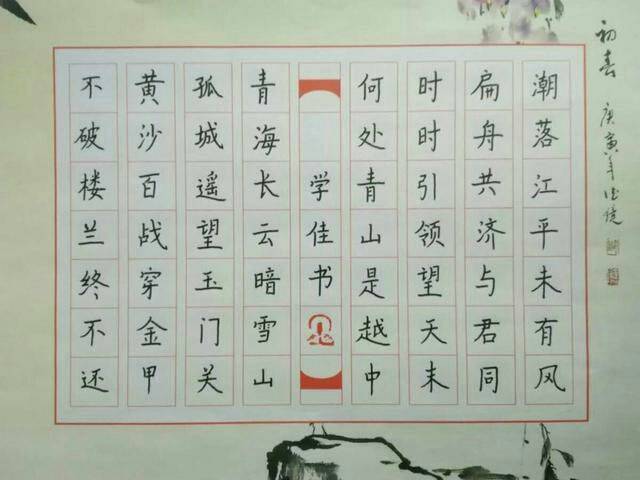 初春
庚寅年
潮落江平未有风
扁舟共济与君同
时时引领望天末
何处青山是越中
学佳书
青海长云暗雪山
孤城遥望玉门关
黄沙百战穿金甲
不破楼兰终不还